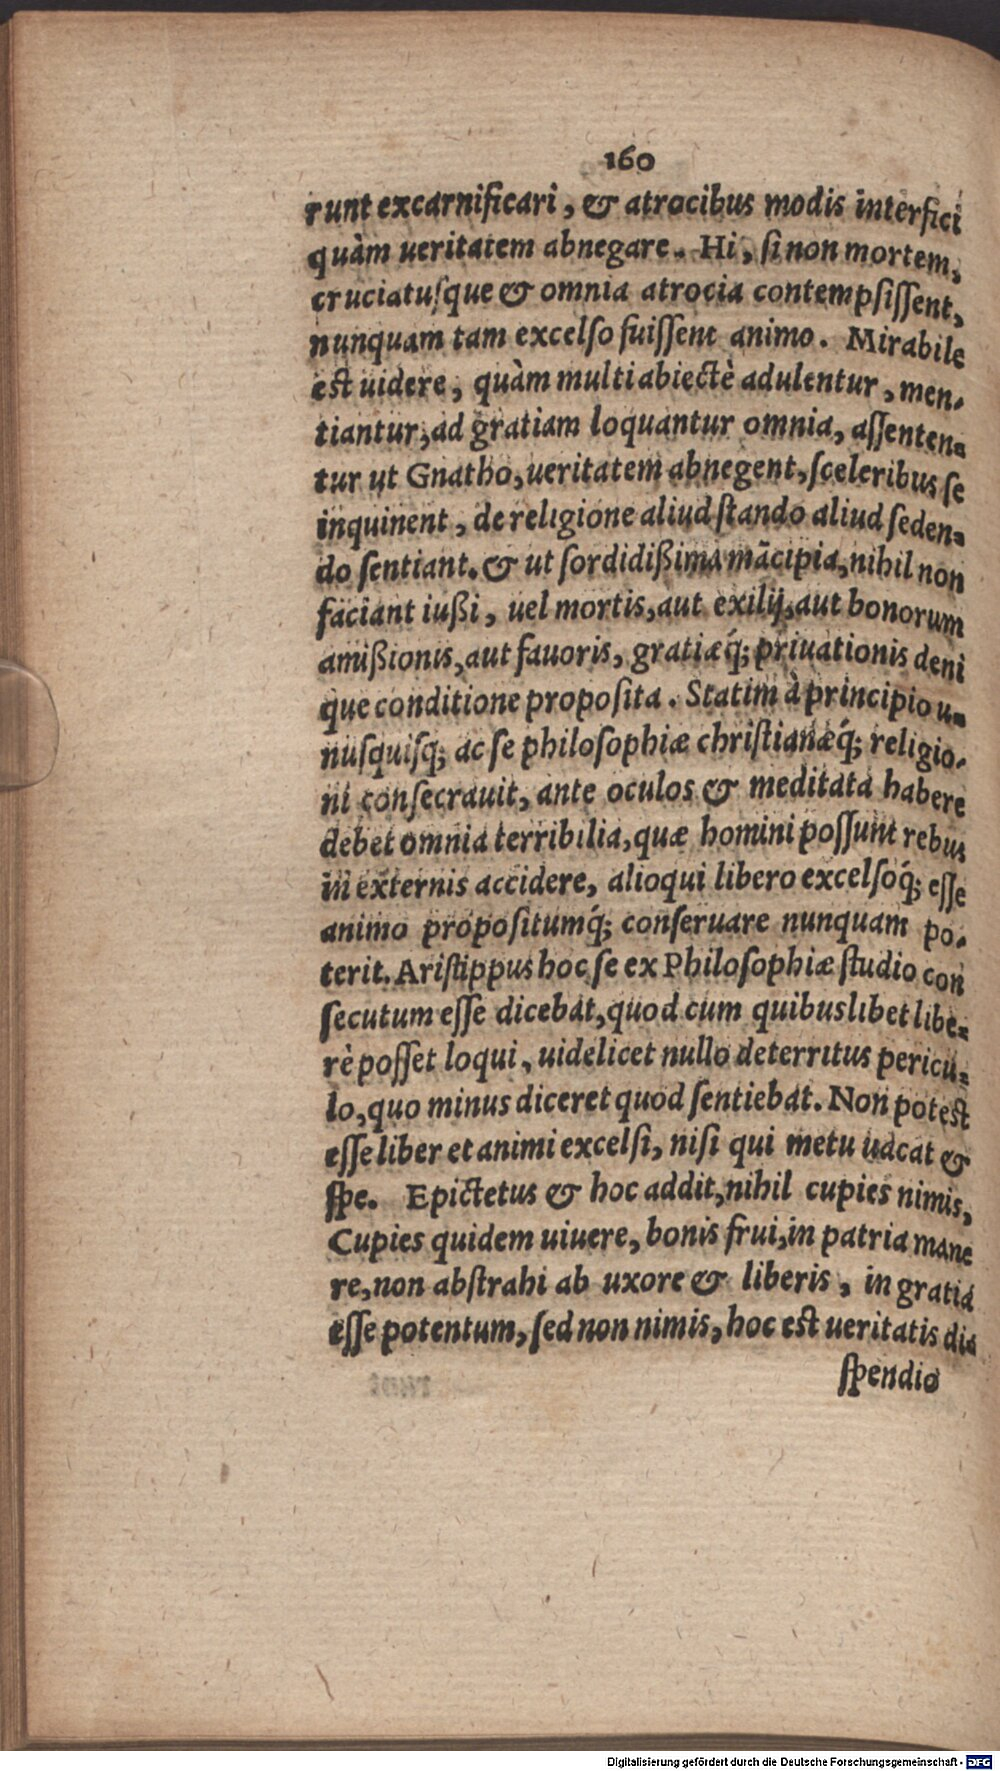 160
runt excarnificari, & atrocibus modis interfici
quàm ueritatem abnegare. Hi, ſi non mortem,
cruciatuſque & omnia atrocia contempſiſſent,
nunquam tam excelſo fuiſſent animo. Mirabile
est uidere, quàm multi abiectè adulentur, men-
tiantur, ad gratiam loquantur omnia, aſſenten-
tur ut Gnatho, ueritatem abnegent, ſceleribus ſe
inquinent, de religione aliud ſtando aliud ſeden-
do ſentiant. & ut ſordidißima mācipia, nihil non
faciant iußi, uel mortis, aut exilij, aut bonorum
amißionis, aut fauoris, gratiæq́; priuationis deni
que conditione propoſita. Statim à principio u-
nuſquiſq; ac ſe philoſophiæ chriſtianæq́; religio-
ni conſecrauit, ante oculos & meditata habere
debet omnia terribilia, quæ homini poſſunt rebus
in externis accidere, alioqui libero excelſoq́; eſſe
animo propoſitumq́; conſeruare nunquam po-
terit. Ariſtippus hoc ſe ex Philoſophiæ ſtudio con
ſecutum eſſe dicebat, quod cum quibuslibet libe-
rè poſſet loqui, uidelicet nullo deterritus pericu-
lo, quo minus diceret quod ſentiebat. Non potest
eſſe liber et animi excelſi, niſi qui metu uacat &
ſpe. Epictetus & hoc addit, nihil cupies nimis,
Cupies quidem uiuere, bonis frui, in patria mane
re, non abſtrahi ab uxore & liberis, in gratia
eſſe potentum, ſed non nimis, hoc est ueritatis di-
ſpendio
Digitalisierung gefördert durch die Deutsche Forschungsgemeinschaft - DFG